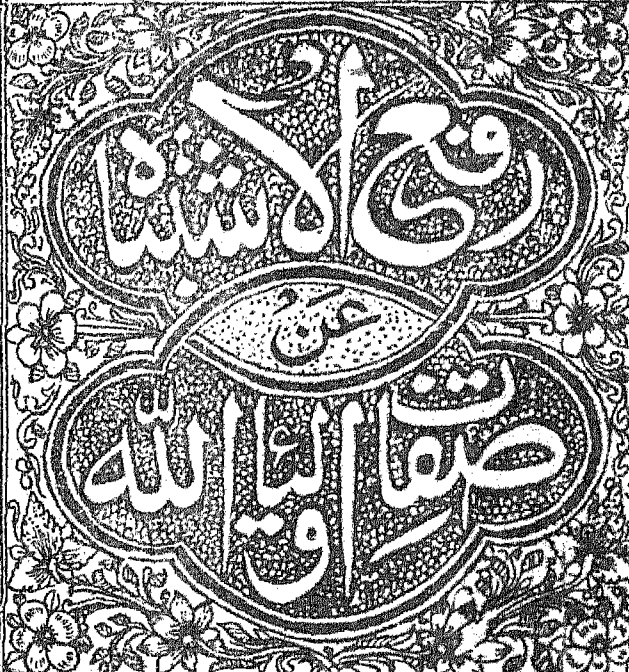 رفع الاشتباه
عن
صفات اولیاء الله